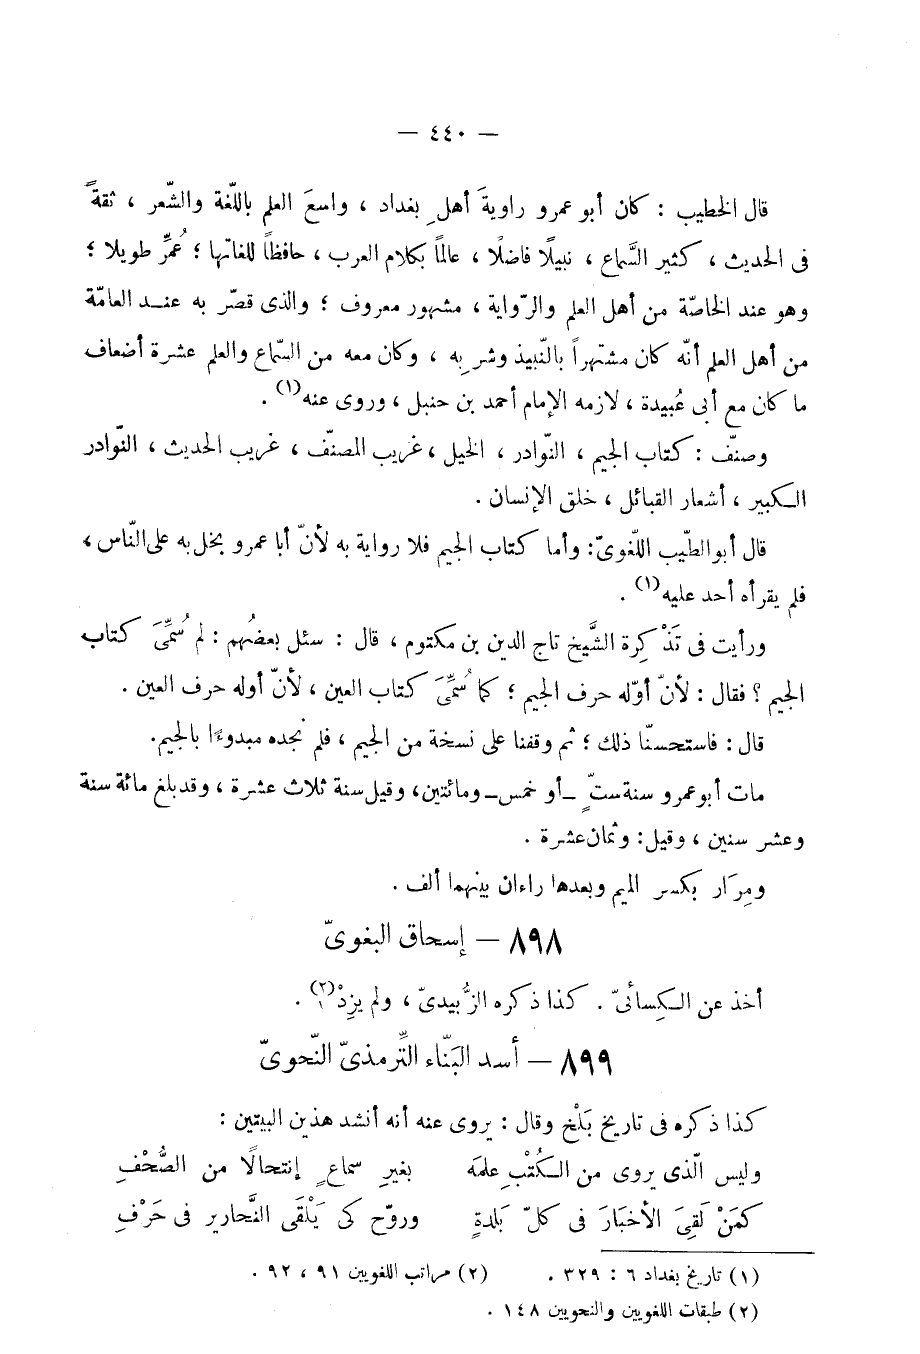 — ٤٤٠ —
قال الخطيب : كان أبو عمرو راويةَ أهل بغداد ، واسعَ العلم باللّغة والشّعر ، ثقةً
فى الحديث ، كثير السَّماع ، نبيلًا فاضلًا ، عالمًا بكلام العرب ، حافظاً للغاتها ؛ عُمِّر طويلا ؛
وهو عند الخاصّة من أهل العلم والرّواية ، مشهور معروف ؛ والذى قصّر به عنـد العامّة
من أهل العلم أنّه كان مشتهراً بالنّبيذ وشربِه ، وكان معه من السّماع والعلم عشرة أضعاف
ما كان مع أبى عُبيدة ، لازمه الإمام أحمد بن حنبل ، وروى عنه(١) .
وصنّف : كتاب الجيم ، النّوادر ، الخيل ، غريب المصنّف ، غريب الحديث ، النّوادر
الكبير ، أشعار القبائل ، خلق الإنسان .
قال أبوالطّيب اللّغوىّ: وأما كتاب الجيم فلا رواية به لأنّ أبا عمرو بخل به على النّاس ،
فلم يقرأه أحد عليه(١) .
ورأيت فى تَذْكِرة الشَّيخ تاج الدين بن مكتوم ، قال : سئل بعضُهم : لم سُمِّىَ كتاب
الجيم ؟ فقال : لأنّ أوّله حرف الجيم ؛ كما سُمِّىَ كتاب العين ، لأنّ أوله حرف العين .
قال : فاستحسنّا ذلك ؛ ثم وقفنا على نسخة من الجيم ، فلم نجده مبدوءًا بالجيم.
مات أبوعمرو سنة ستٍّ ــ أو خمس ــ ومائتين، وقيل سنة ثلاث عشرة ، وقد بلغ مائة سنة
وعشر سنين ، وقيل: وثمان عشرة .
ومِرَار بكسر الميم وبعدها راءان بينهما ألف .
٨٩٨ — إسحاق البغوىّ
أخذ عن الكِسائىّ . كذا ذكره الزُّبيدىّ ، ولم يزِدْ(٢) .
٨٩٩ — أسد البَنّاء التِّرمذىّ النّحوىّ
كذا ذكره فى تاريخ بَلْخ وقال : يروى عنه أنه أنشد هذين البيتين :
وليس الّذى يروى من الكُتْبِ علمَه بغيرِ سماعٍ إنتحالًا من الصُّحْفِ
كمَنْ لَقِىَ الأخبَارَ فى كلّ بَلدةٍ وروّح كى يَلْقَى النَّحارير فى حَرْفِ
(١) تاريخ بغداد ٦ : ٣٢٩ . (٢) مراتب اللغويين ٩١ ، ٩٢ .
(٢) طبقات اللغويين والنحويين ١٤٨ .